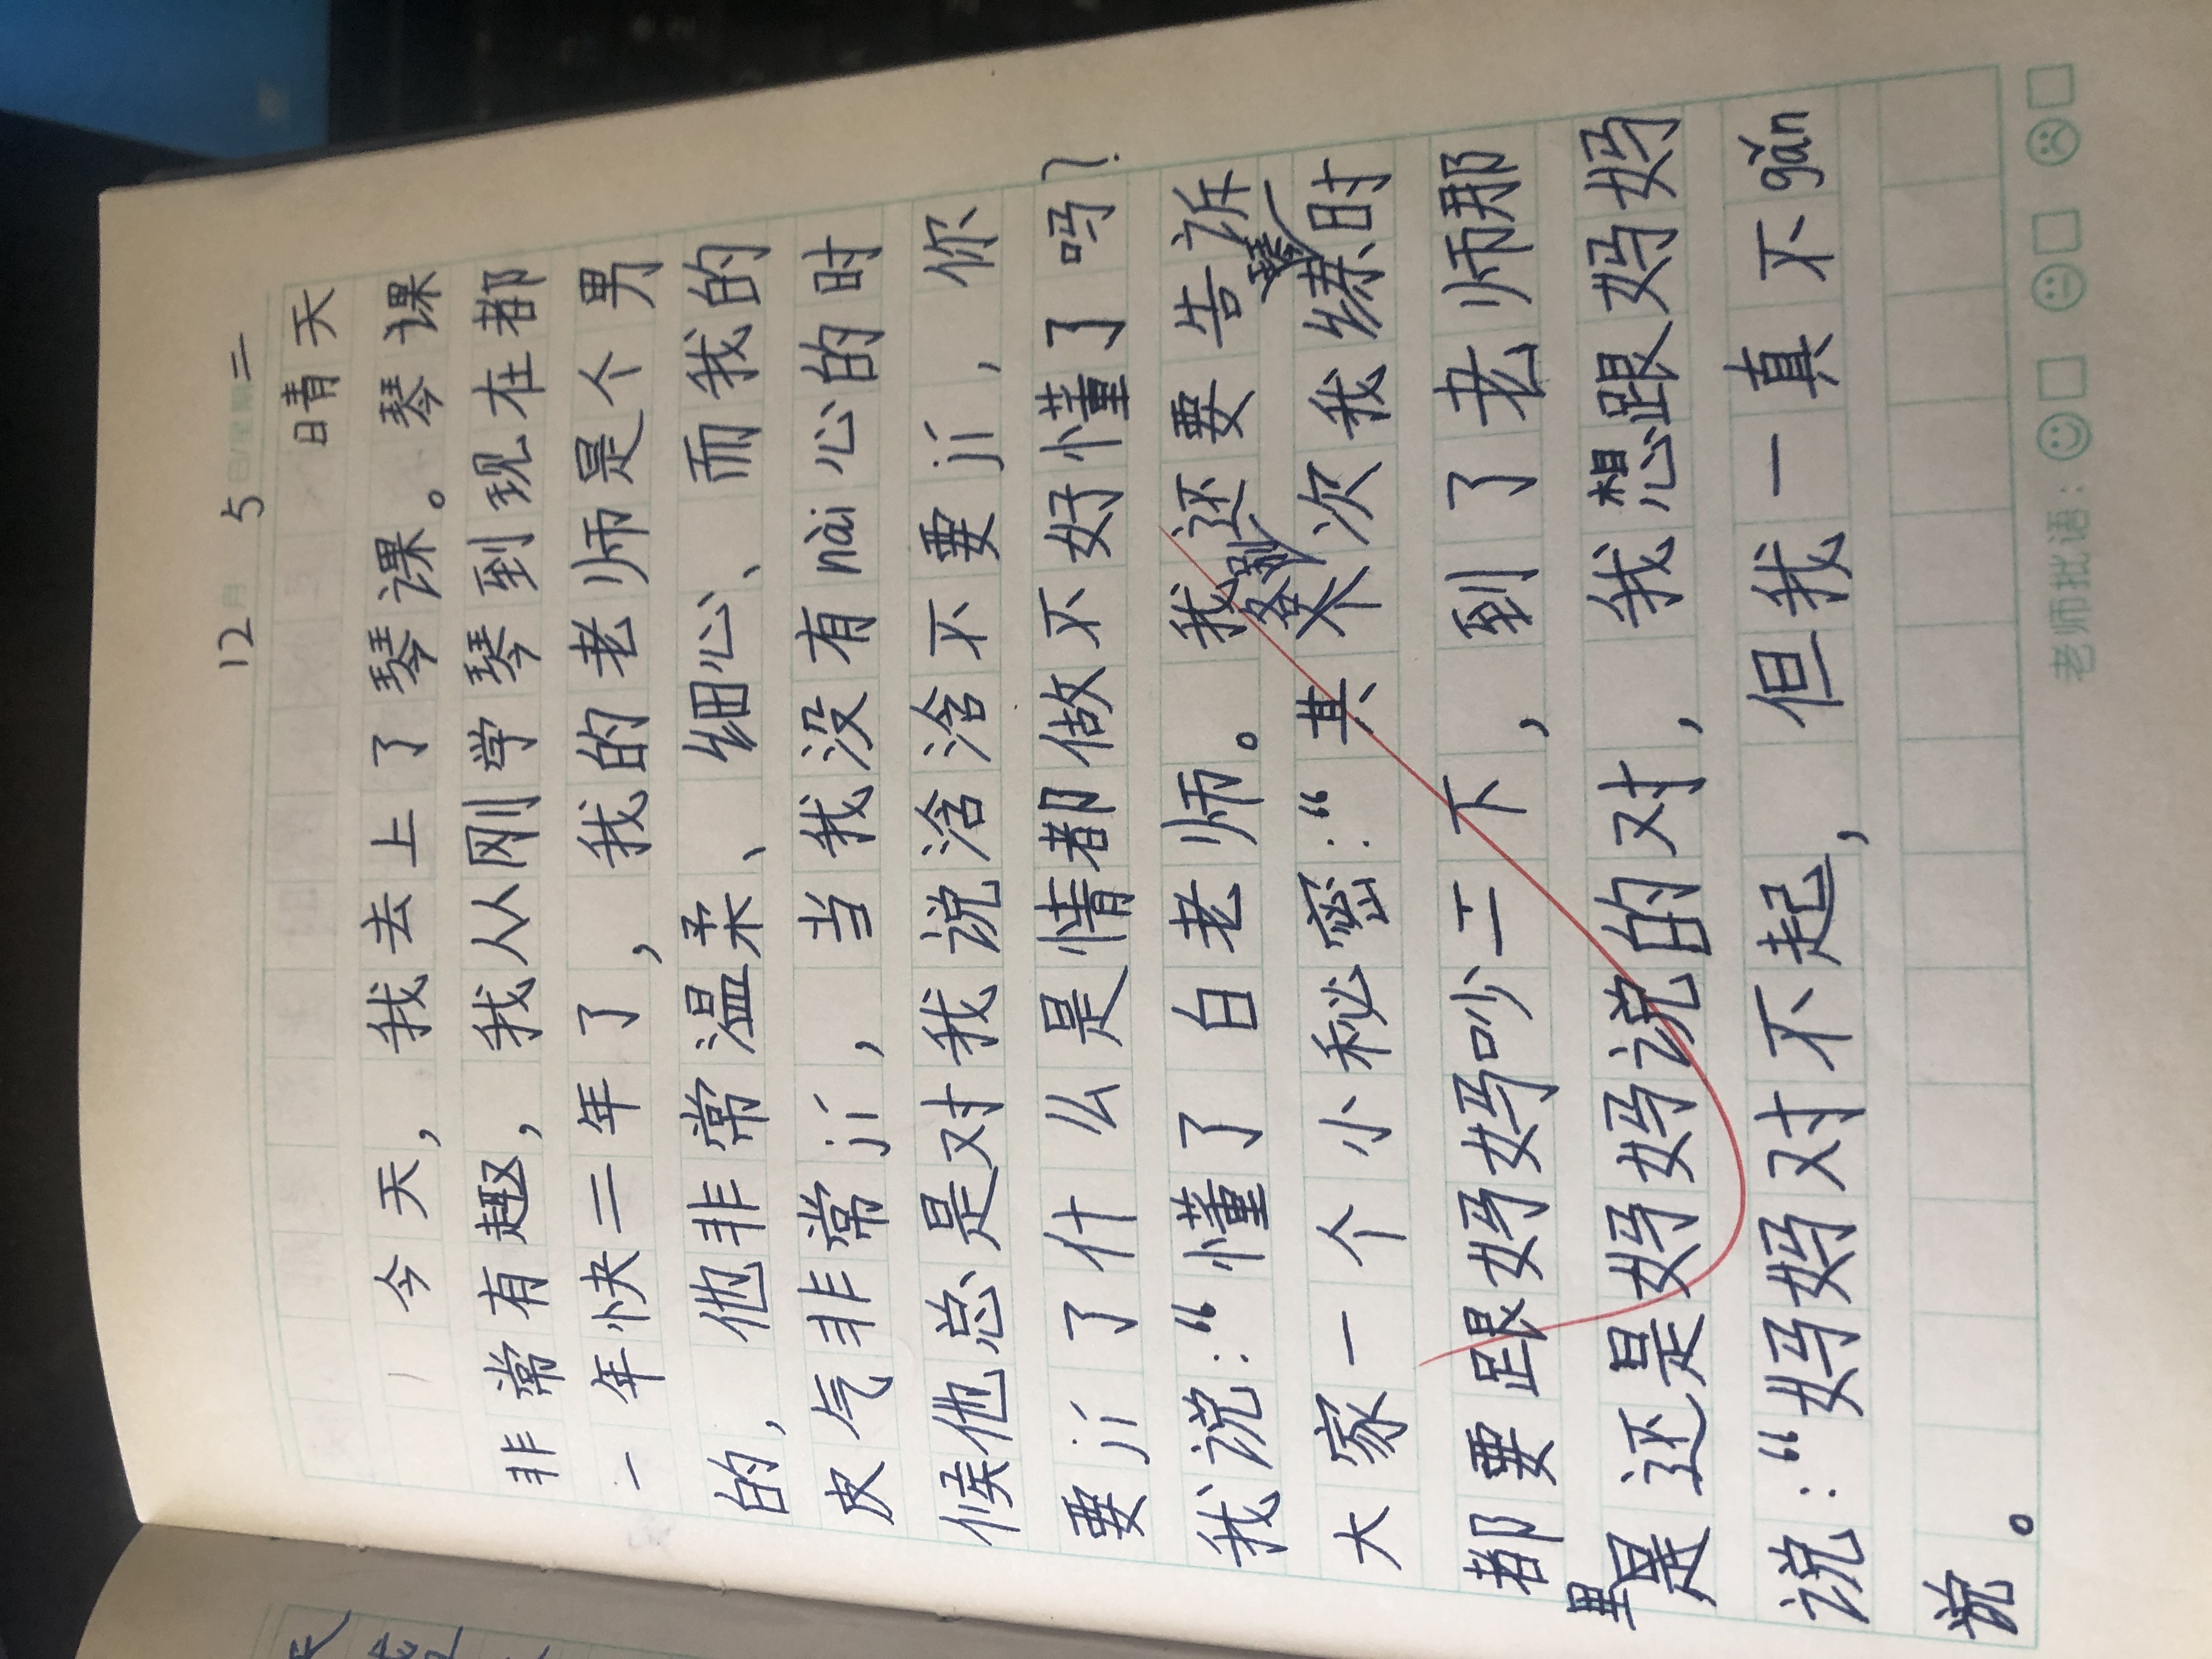 12月5日星期二
日青天
今天，我去上了琴课。琴课
非常有趣，我从刚学琴到现在都
一年快二年了，我的老师是个男
的，他非常温柔、细心、而我的
皮气非常jí，当我没有nài心的时
候他总是对我说浛浛不要jí，你
要jí了什么是情都做不好懂了吗？
我说：“懂了白老师。我还要告诉
大家一个小秘密：“其实每次我练琴时
都要跟妈妈吵一下，到了老师那里
是还是妈妈说的对，我想跟妈妈
说：“妈妈对不起，但我一真不gǎn
说。
老师批语：